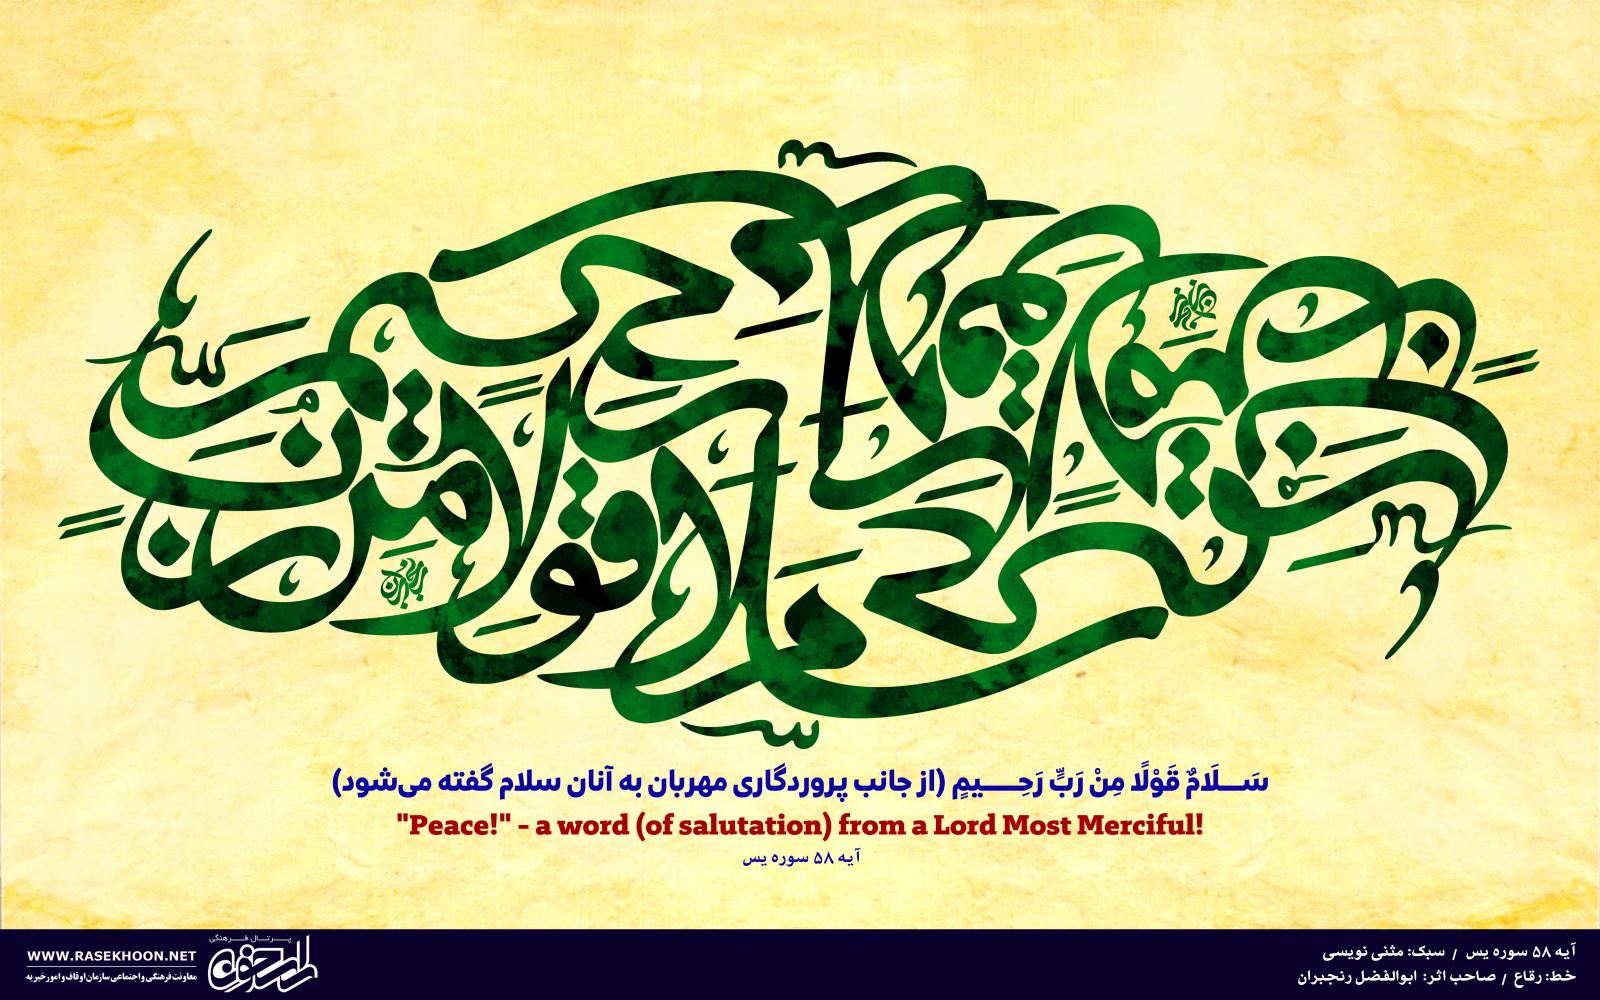 سلام قولا من رب رحیم
سَـــلَامٌ قَوْلًا مِنْ رَبٍّ رَحِـــــیمٍ (از جانب پروردگاری مهربان به آنان سلام گفته می‌شود)
"Peace!" - a word (of salutation) from a Lord Most Merciful!
آیه ۵۸ سوره یس
آیه ۵۸ سوره یس / سبک: مثنی نویسی
خط: رقاع / صاحب اثر: ابوالفضل رنجبران
پرتال فرهنگی
راسخون
WWW.RASEKHOON.NET
معاونت فرهنگی و اجتماعی سازمان اوقاف و امور خیریه